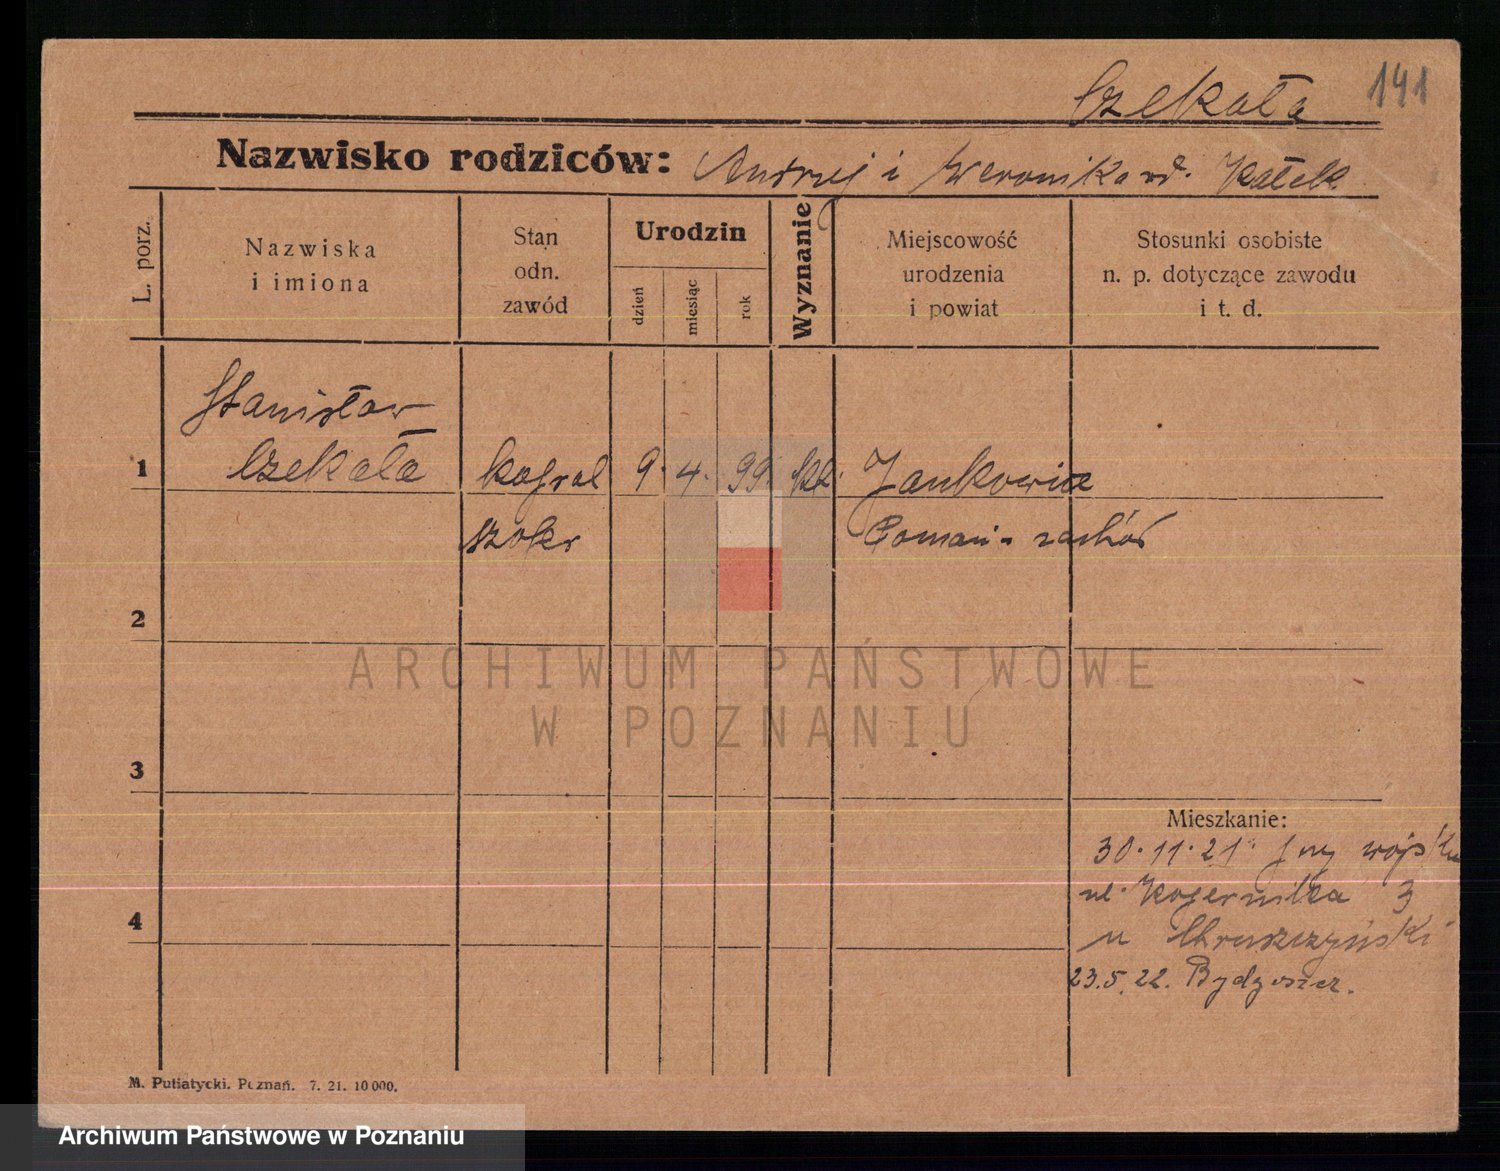 Czekała 141
Nazwisko rodziców: Andrzej i Weronika rd. Kałek
L. porz.
Nazwiska
i imiona
Stan
odn.
zawód
Urodzin
dzień
miesiąc
rok
Wyznanie
Miejscowość
urodzenia
i powiat
Stosunki osobiste
n. p. dotyczące zawodu
i t. d.
Stanisław
1 Czekała kapral 9. 4. 99. kt. Jankowice
Poznań-zachód
2
3
Mieszkanie:
30.11.21 przy wojsku
ul. Kopernika 3
4
u Chruszczyński
23.5.22. Bydgoszcz.
M. Putiatycki. Poznań. 7. 21. 10 000.
ARCHIWUM PAŃSTWOWE
W POZNANIU
Archiwum Państwowe w Poznaniu